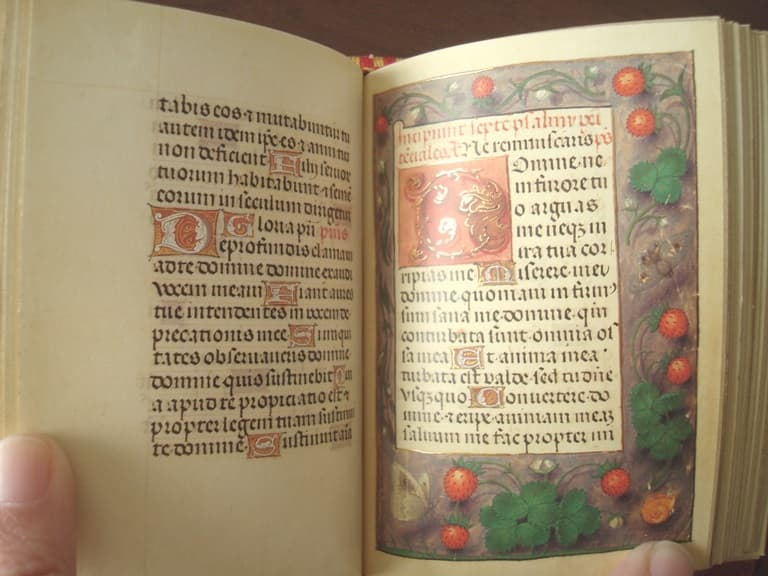 tabis eos ⁊ mutabuntur tu
autem idem ipe es ⁊ anni tui
non deficient Filij seruor
tuorum habitabunt ⁊ semē
eorum in seculum dirigetur
Gloria pri̅ psus
De profundis clamaui
ad te domine domine exaudi
vocem meam Fiant aures
tue intendentes in vocem de
precationis mee Si iniqui
tates obseruaueris domine
domine quis sustinebit Qui
a apud te propiciatio est ⁊
propter legem tuam sustinui
te domine Sustinuit aīa
Incipiunt septē psalmi pei
tēciales. A Ne reminiscaris ps
Domine ne
in furore tu
o arguas
me neqz in
ira tua cor
ripias me Miserere mei
domine quoniam infirm9
sum sana me domine qm̄
conturbata sunt omnia os
sa mea Et anima mea
turbata est valde sed tu dn̄e
vsqz quo Conuertere do
mine ⁊ eripe animam meaz
saluum me fac propter mi